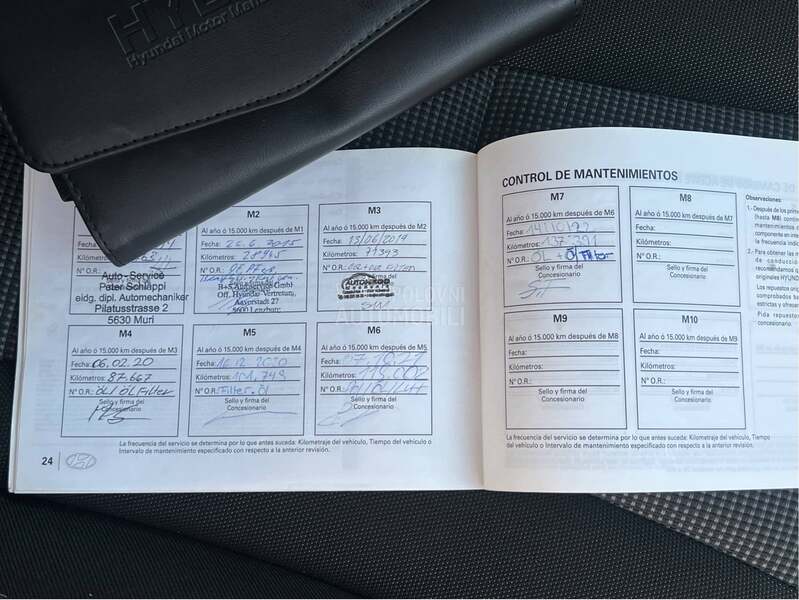 HY
Hyundai Motor
CONTROL DE MANTENIMIENTOS
M2
Al año ó 15.000 km después de M1
Fecha: 26.6.2015
Kilómetros: 28965
N° O.R.:
B+S Autoservice GmbH
Off. Hyundai-Vertretung
5600 Lenzburg
Auto-Service
Peter Schläppi
eidg. dipl. Automechaniker
Pilatusstrasse 2
5630 Muri
M3
Al año ó 15.000 km después de M2
Fecha: 13/06/2019
Kilómetros: 71393
N° O.R.:
Sello y firma del
M4
Al año ó 15.000 km después de M3
Fecha: 06.02.20
Kilómetros: 87.667
N° O.R.: Öl/ÖL Filter
Sello y firma del
Concesionario
M5
Al año ó 15.000 km después de M4
Fecha: 16.12.2020
Kilómetros:
N° O.R.: Filter+Öl
Sello y firma del
Concesionario
M6
Al año ó 15.000 km después de M5
Fecha: 07.10.21
Kilómetros: 119.002
N° O.R.:
Sello y firma del
Concesionario
La frecuencia del servicio se determina por lo que antes suceda: Kilometraje del vehículo, Tiempo del vehículo o
Intervalo de mantenimiento especificado con respecto a la anterior revisión.
24
M7
Al año ó 15.000 km después de M6
Fecha:
Kilómetros: 137'391
N° O.R.: ÖL + Ö/Filter
Sello y firma del
Concesionario
M8
Al año ó 15.000 km después de M7
Fecha:
Kilómetros:
N° O.R.:
Sello y firma del
Concesionario
M9
Al año ó 15.000 km después de M8
Fecha:
Kilómetros:
N° O.R.:
Sello y firma del
Concesionario
M10
Al año ó 15.000 km después de M9
Fecha:
Kilómetros:
N° O.R.:
Sello y firma del
Concesionario
La frecuencia del servicio se determina por lo que antes suceda: Kilometraje del vehículo, Tiempo
del vehículo o Intervalo de mantenimiento especificado con respecto a la anterior revisión.
Observaciones:
1.- Después de los prime
(hasta M8) contin
mantenimientos
componente en interv
la frecuencia indic
2.- Para obtener las m
de conducció
recomendamos q
originales HYUND
Los repuestos origi
comprobados bas
estrictas y ofrecen
Pida los repuesto
concesionario.